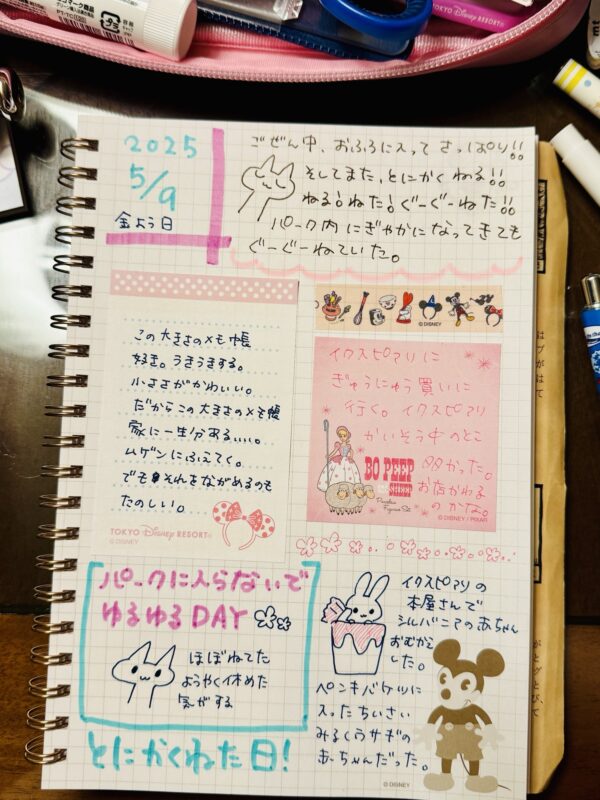 エコマーク商品
容器
TOKYO Disney RESORT
2025
5/9
金よう日
ごぜん中、おふろに入って さっぱり!!
そしてまた、とにかく ねる!!
ねる!ねた!ぐーぐーねた!!
パーク内にぎやかになってきても
ぐーぐーねていた。
この大きさのメモ帳
好き。うきうきする。
小ささがかわいい。
だからこの大きさのメモ帳
家に一生分ある、、、。
ムゲンにふえてく。
でもそれをながめるのも
たのしい。
TOKYO Disney RESORT
© DISNEY
© DISNEY
イクスピアリに
ぎゅうにゅう買いに
行く。イクスピアリ
かいそう中のとこ
多かった。
お店かわる
のかな。
BO PEEP
AND SHEEP
Porcelain
Figurine Set
© DISNEY / PIXAR
パークに入らないで
ゆるゆるDAY
ほぼねてた
ようやく休めた
気がする
とにかくねた日!
イクスピアリの
本屋さんで
シルバニアの赤ちゃん
おむかえ
した。
ペンキバケツに
入ったちいさい
みるくウサギの
あーちゃんだった。
© DISNEY